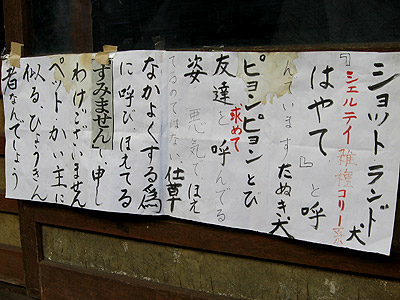 ショットランド犬
シェルティ雑種コリー系
『はやて』と呼
んでいますたぬき犬
ピョンピョンとび
求めて
友達を呼んでる
姿 悪気でほえ
てるのではない、仕草
なかよくする為
に呼び、ほえてる
すみませんで申し
わけございません
ペットかい主に
似るひょうきん
者なんでしょう